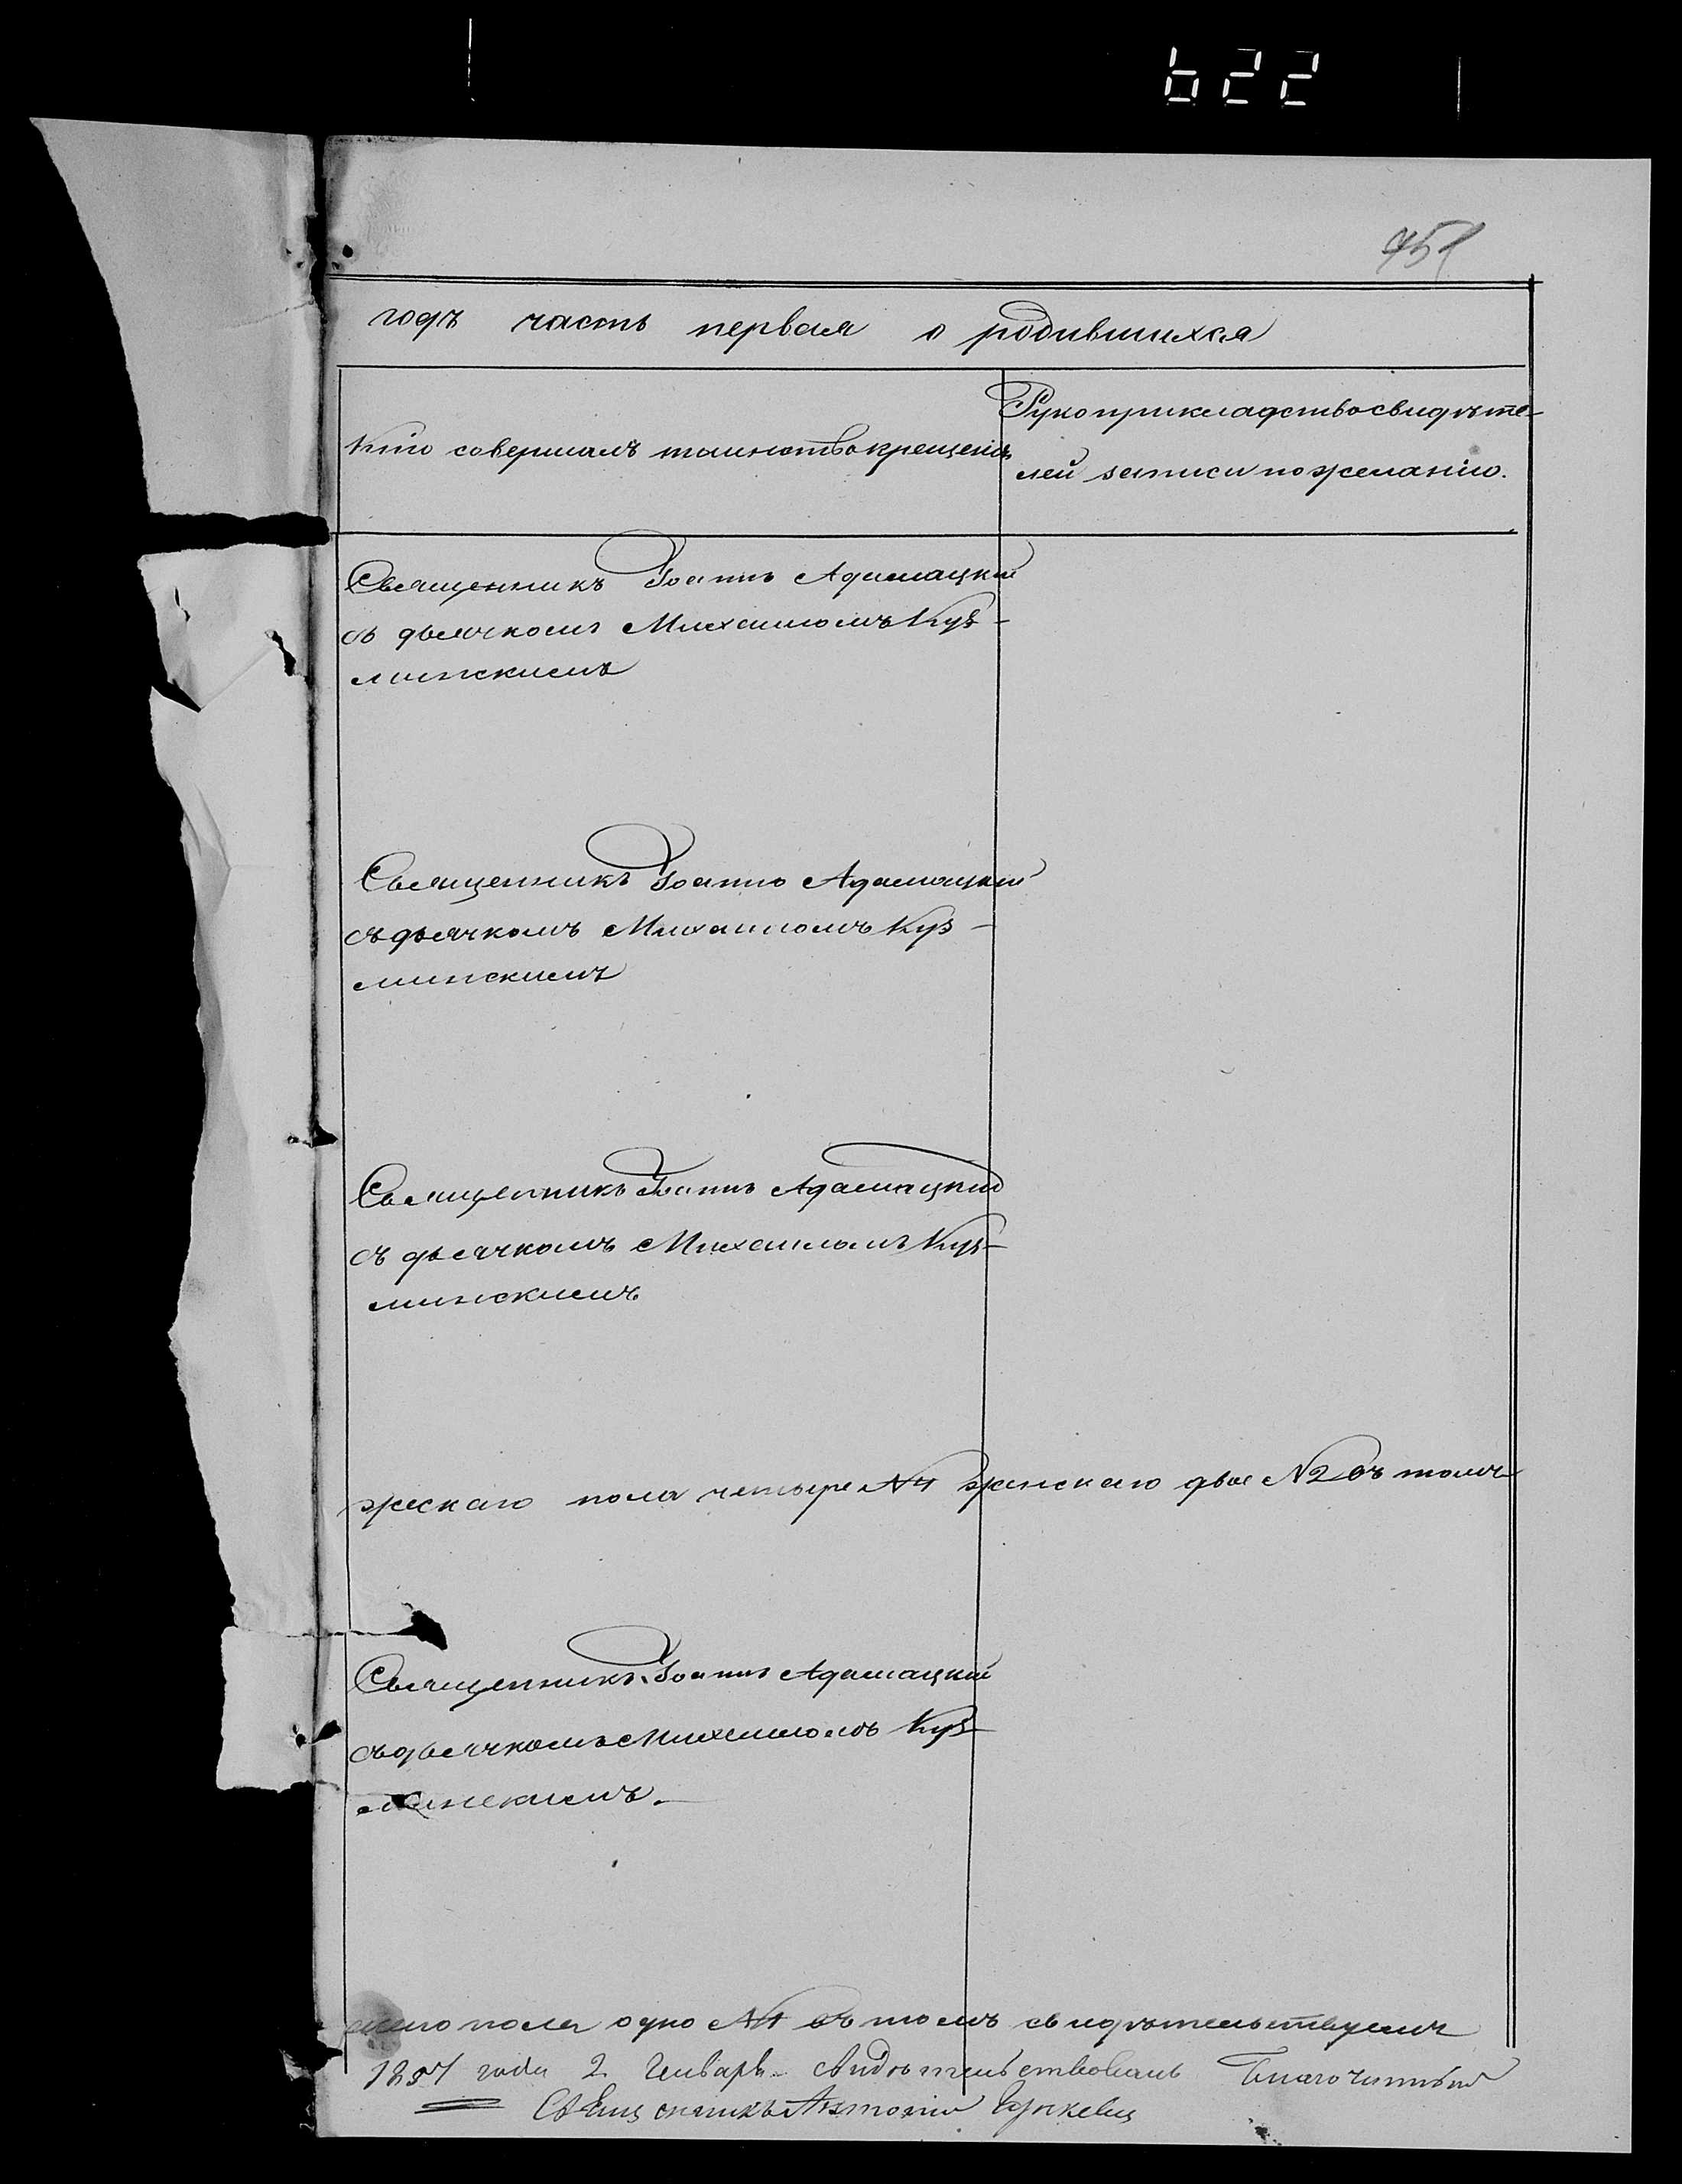 622
годъ часть первая о родившихся
Кто совершалъ таинство крещенія
Рукоприкладство свидѣте-
лей записи по желанію.
Священникъ Іоаннъ Адамацкій
съ дьячкомъ Михаиломъ Куз-
минскимъ
Священникъ Іоаннъ Адамацкій
съ дьячкомъ Михаиломъ Куз-
минскимъ
Священникъ Іоаннъ Адамацкій
съ дьячкомъ Михаиломъ Куз-
минскимъ
жескаго пола четыре №4 женскаго двое №2 въ томъ
Священникъ Іоаннъ Адамацкій
съ дьячкомъ Михаиломъ Куз-
минскимъ.
пола одно №1 въ томъ свидѣтельствуемъ
1857 года 2 Генваря свидѣтельствовалъ Благочинный
Священникъ Антоній